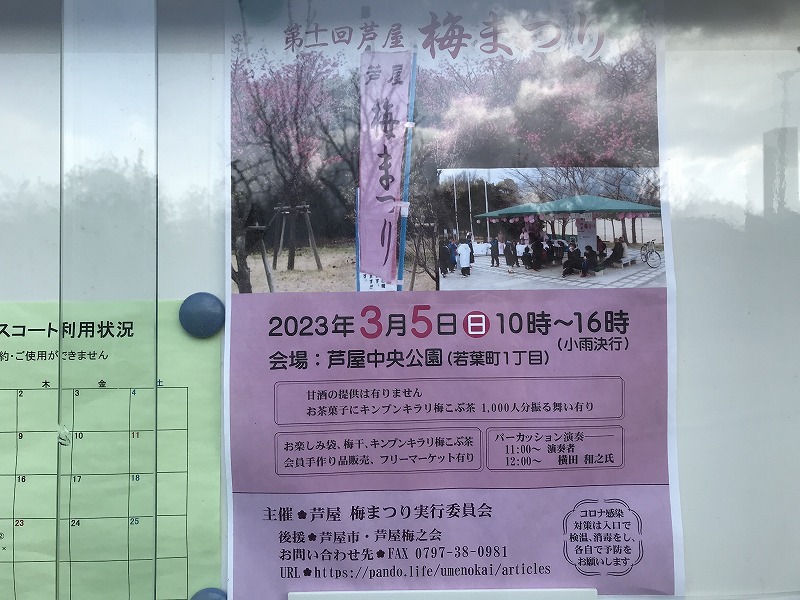 第十回芦屋 梅まつり
芦屋
梅まつり
2023年3月5日㊐10時~16時
(小雨決行)
会場：芦屋中央公園(若葉町1丁目)
甘酒の提供は有りません
お茶菓子にキンプンキラリ梅こぶ茶 1,000人分振る舞い有り
お楽しみ袋、梅干、キンプンキラリ梅こぶ茶
会員手作り品販売、フリーマーケット有り
パーカッション演奏
11:00~ 演奏者
12:00~ 横田 和之氏
主催 芦屋 梅まつり実行委員会
後援 芦屋市・芦屋梅之会
お問い合わせ先 FAX 0797-38-0981
URL https://pando.life/umenokai/articles
コロナ感染
対策は入口で
検温、消毒をし、
各自で予防を
お願いします
スコート利用状況
約・ご使用ができません
木 金 土
2 3 4
9 10 11
16 17 18
23 24 25